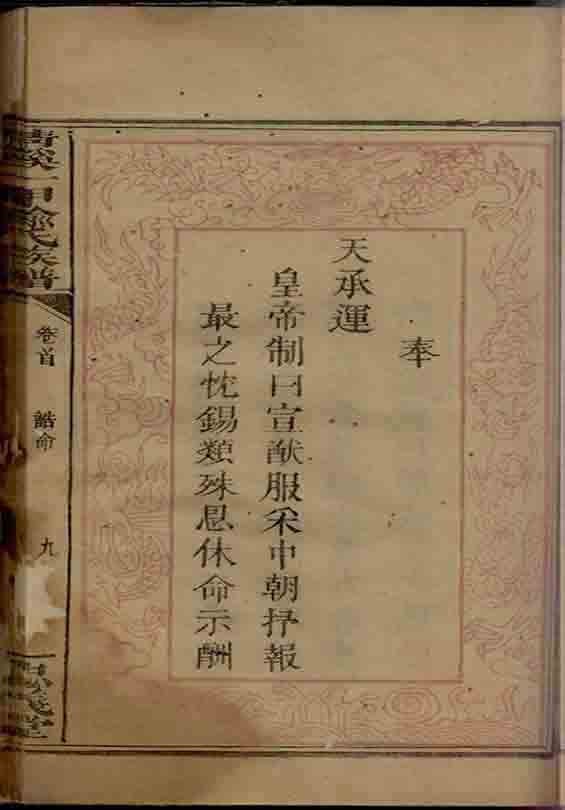 奉
天承運
皇帝制曰宣猷服采中朝抒報
最之忱錫類殊恩休命示酬
族譜
卷首
誥命
九